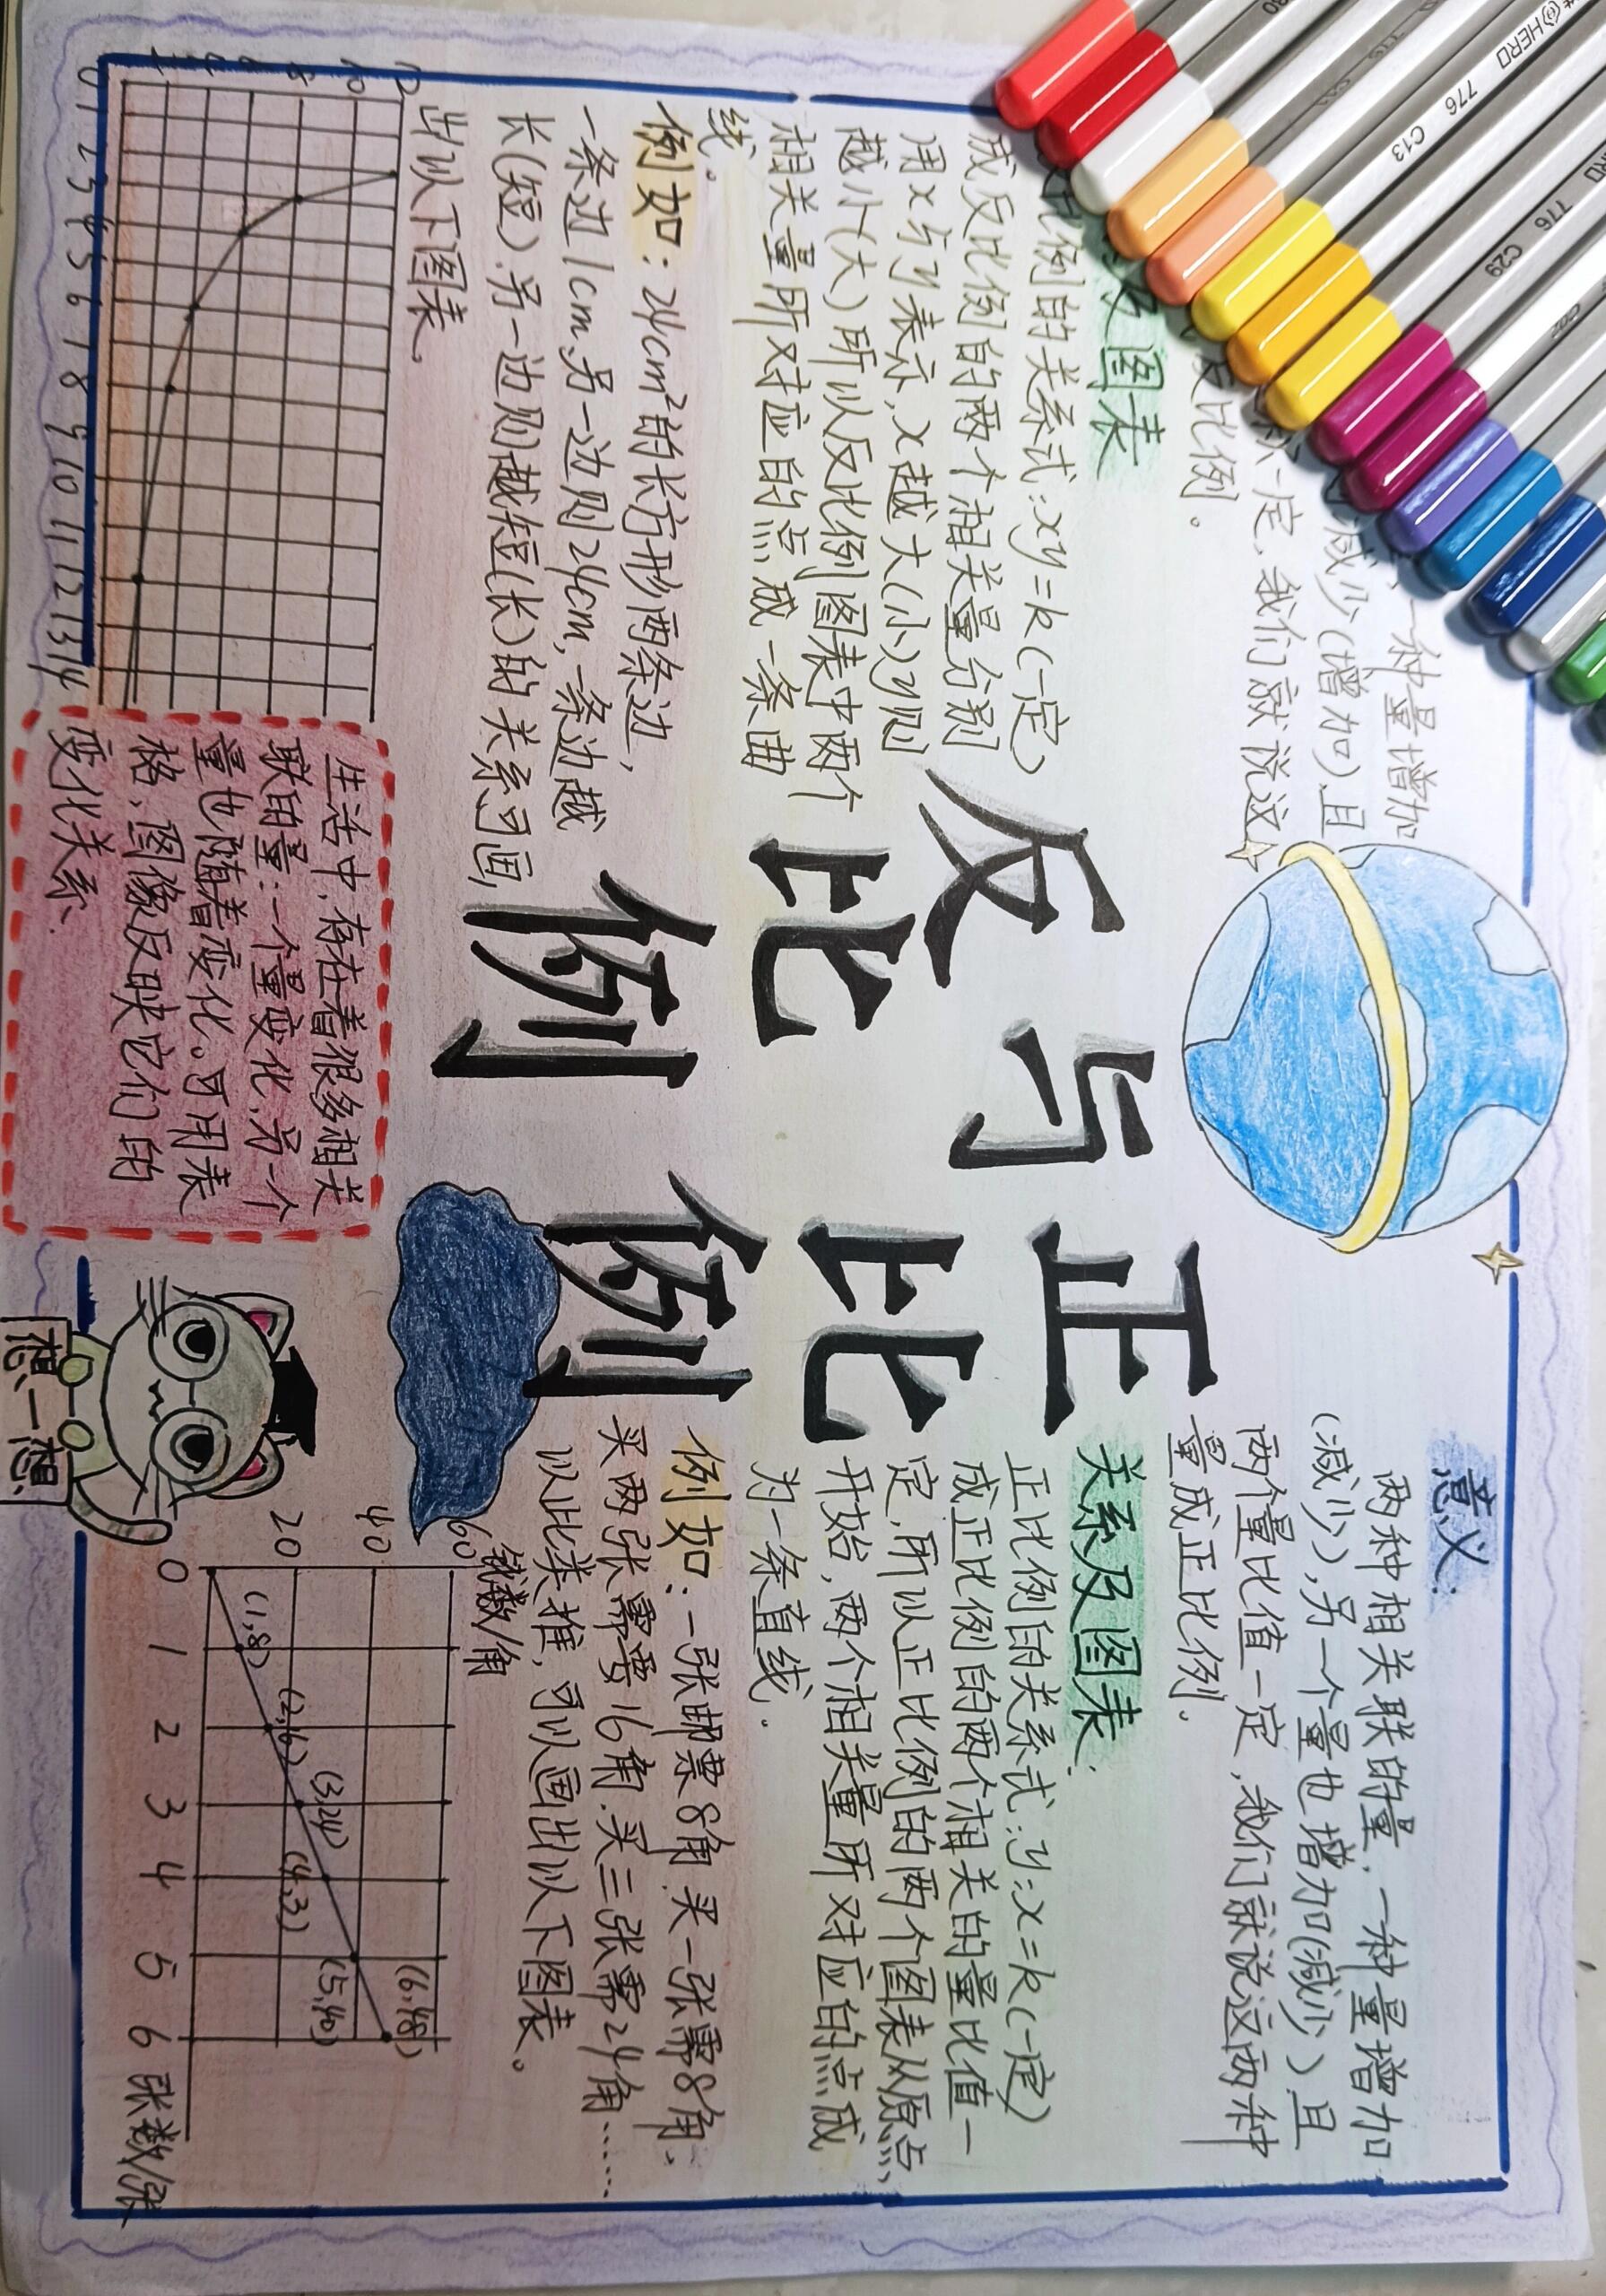 反与正
比比
例例
一种量增加
减少(增加)且
一定,我们就说这
反比例。
及图表
比例的关系式:xy=k(一定)
成反比例的两个相关量分别
用x与y表示,x越大(小)y则
越小(大)所以反比例图表中两个
相关量所对应的点成一条曲
线。
例如:24cm²的长方形两条边,
一条边1cm,另一边则24cm,一条边越
长(短),另一边则越短(长)的关系可画
出以下图表。
12
10
8
6
4
2
0 1 2 3 4 5 6 7 8 9 10 11 12 13 14
生活中,存在着很多相关
联的量:一个量变化,另一个
量也随着变化。可用表
格、图像反映它们的
变化关系.
想一想
意义:
两种相关联的量,一种量增加
(减少),另一个量也增加(减少)且
两个量比值一定,我们就说这两种
量成正比例.
关系及图表:
正比例的关系式:y:x=k(一定)
成正比例的两个相关的量比值一
定,所以正比例的两个图表从原点
开始,两个相关量所对应的点成
为一条直线.
例如:一张邮票8角,买一张需8角,
买两张需要16角,买三张需24角……
以此类推,可以画出以下图表。
钱数/角
60
40
20
(1,8) (2,16) (3,24) (4,3) (5,40) (6,48)
0 1 2 3 4 5 6 张数/张
HERO
776 C13
776 C29